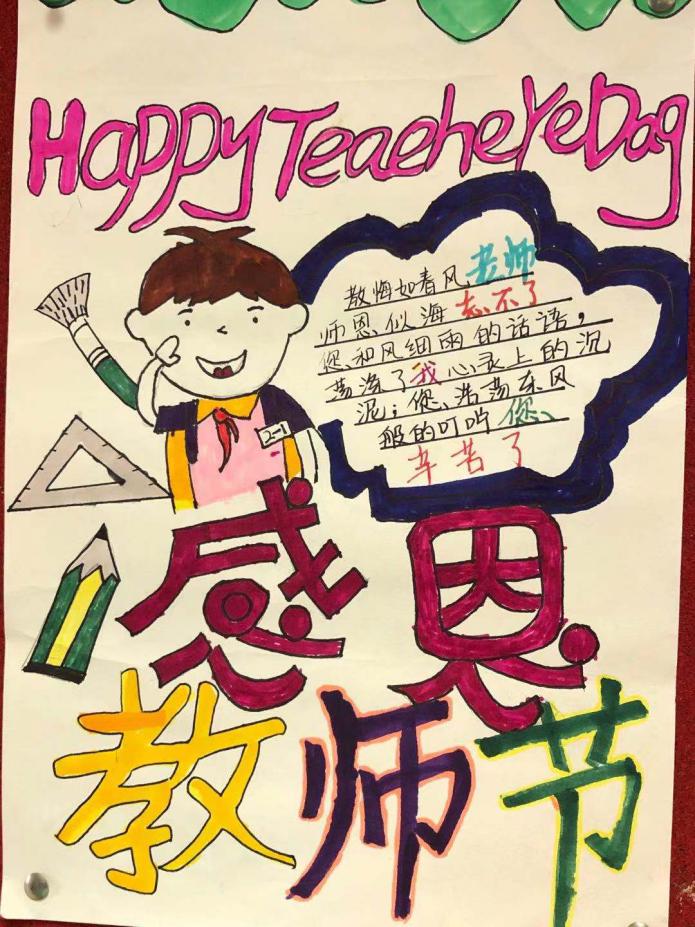 Happy TeaeheYe Dag
教悔如春风,老师
师恩似海 忘不了
您和风细雨的话语,
荡涤了我心灵上的沉
泥;您、浩荡东风
般的叮咛 您、
辛苦了
2-1
感恩
教师节